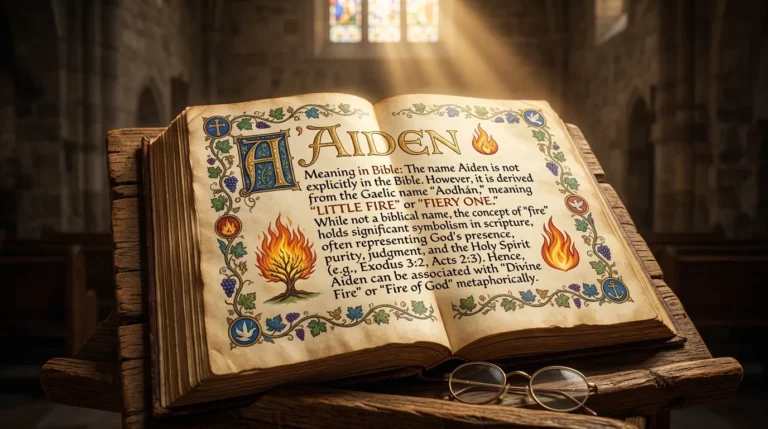 A'AIDEN
Meaning in Bible: The name Aiden is not
explicitly in the Bible. However, it is derived
from the Gaelic name "Aodhán," meaning
"LITTLE FIRE" or "FIERY ONE."
While not a biblical name, the concept of "fire"
holds significant symbolism in scripture,
often representing God's presence,
purity, judgment, and the Holy Spirit
(e.g., Exodus 3:2, Acts 2:3). Hence,
Aiden can be associated with "Divine
Fire" or "Fire of God" metaphorically.